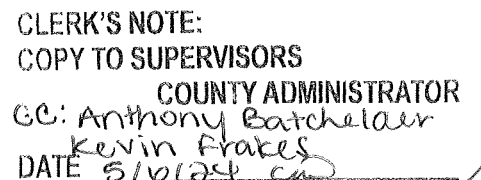 CLERK'S NOTE:
COPY TO SUPERVISORS
COUNTY ADMINISTRATOR
CC: Anthony Batchelder
Kevin Frakes
DATE 5/6/24